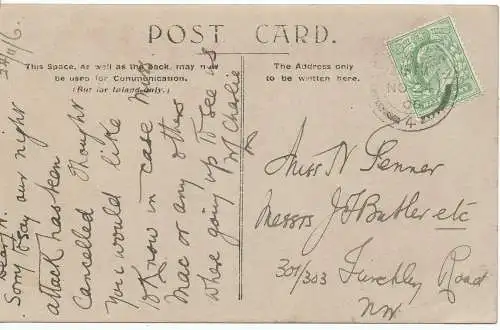 POST CARD.
This Space, as well as the back, may now
be used for Communication.
(But for Inland only.)
The Address only
to be written here.
Dear N.
Sorry to say our night
attack has been
Cancelled thought
you would like
to Know in case
Mac or any others
where going up to see us
Charlie
NO
06
4
Miss N Fenner
Messrs J F Butler etc
301/303 Finchley Road
N.W.